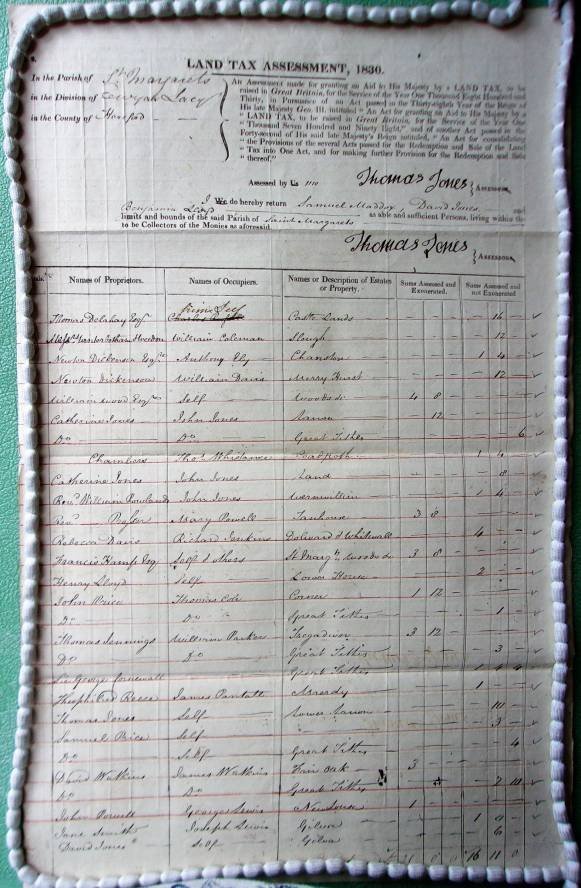 LAND TAX ASSESSMENT, 1830.
In the Parish of St. Margarets
in the Division of Ewyas Lacy
in the County of Hereford
An Assessment made for granting an Aid to His Majesty by a LAND TAX, to be
raised in Great Britain, for the Service of the Year One Thousand Eight Hundred and
Thirty, in Pursuance of an Act passed in the Thirty-eighth Year of the Reign of
His late Majesty Geo. III. intituled "An Act for granting an Aid to His Majesty by a
"LAND TAX, to be raised in Great Britain, for the Service of the Year One
"Thousand Seven Hundred and Ninety Eight," and of another Act passed in the
Forty-second of His said late Majesty's Reign intituled, "An Act for consolidating
"the Provisions of the several Acts passed for the Redemption and Sale of the Land
"Tax into One Act, and for making further Provision for the Redemption and Sale
"thereof."
Assessed by Us me Thomas Jones } Assessor
I We do hereby return Samuel Maddoy, David Jones and
Benjamin Lloyd as able and sufficient Persons, living within the
limits and bounds of the said Parish of Saint Margarets
to be Collectors of the Monies as aforesaid.
Thomas Jones } Assessors
Names of Proprietors. Names of Occupiers. Names or Description of Estates or Property. Sums Assessed and Exonerated. Sums Assessed and not Exonerated.
Thomas Delahay Esqr Castle Lands 16
William Coleman Slough 12
Newton Dickenson Esqr Anthony Ely Chanston 1 4
Newton Dickenson William Davis Merry Hurst 12
William Wood Esqr Self Woodside 4 8
Catherine Jones John Jones 12
Do Do Great Tithes 6
Chambers Thos. 1 4
Catherine Jones John Jones Land 8
Revd William Rowlands John Jones 1 4
Revd Mary Powell Tanhouse 3 8
Rebecca Davis Richard Jenkins Dolward & Whitewall 4
Francis Hamp Esq Self & others St Margts Woodside 3 8
Henry Lloyd Self Lower House 2
John Price Thomas Cole Corner 1 12
Do Do Great Tithes 1
Thomas Jennings William Parker Tregadwen 3 12
Do Do Great Tithes 3
Sir George Cornewall Great Tithes 1 4 4
Theophilus Reece James 1
Thomas Jones Self Lower 10
Samuel Price Self 3
Do Self Great Tithes 4
David Watkins James Watkins Fair Oak 3
Do Do Great Tithes 2 10
John Powell George Lewis New house 1
Jane Smith Joseph Lewis Gilva 1 4
David Jones Self Gilva 6
16 11 0